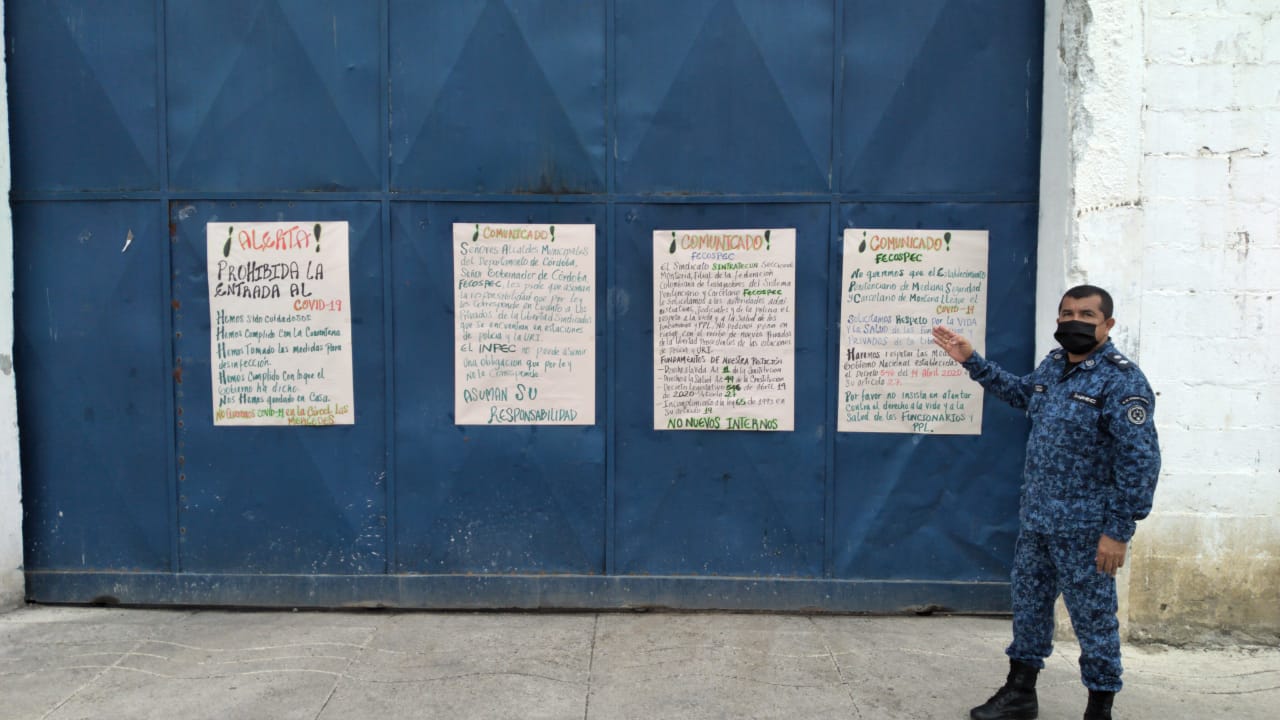 ¡ALERTA!
PROHIBIDA LA
ENTRADA AL
COVID-19
Hemos sido Cuidadosos
Hemos Cumplido Con La Cuarentena
Hemos Tomado las Medidas Para
desinfección.
Hemos Cumplido Con lo que el
Gobierno Ha dicho
Nos Hemos quedado en Casa.
No Queremos COVID-19 en la Cárcel Las
MERCEDES
¡COMUNICADO!
Señores Alcaldes Municipales
del Departamento de Córdoba,
Señor Gobernador de Córdoba,
FECOSPEC, les pide que asuman
la responsabilidad que por Ley
les Corresponde en Cuanto a Los
Privados de la Libertad Sindicados
que se encuentran en estaciones
de policia y la URI.
EL INPEC no puede asumir
una obligación que por ley
no le Corresponde.
ASUMAN SU
RESPONSABILIDAD
¡COMUNICADO!
FECOSPEC
El Sindicato SINTRATECUN Seccional
Montería, Filial de la Federación
Colombiana de trabajadores del Sistema
Penitenciario y Carcelario FECOSPEC
le Solicitamos a las autoridades
Judiciales y de la policia el
respeto a la Vida y a la Salud de los
funcionarios y PPL. No podemos
con el recibo de nuevos Privados
de la Libertad Provenientes de las estaciones
de policia y URI.
FUNDAMENTOS DE NUESTRA PETICIÓN
- Derecho a la Vida Art 11 de la Constitución
- Derecho a la Salud Art 49 de la Constitución
- Decreto Legislativo 546 de Abril 14
de 2020 - Articulo 27
- Incumplimiento a la ley 65 de 1993 en
Su articulo 19
NO NUEVOS INTERNOS
¡COMUNICADO!
FECOSPEC
No queremos que el Establecimiento
Penitenciario de Mediana Seguridad
y Carcelario de Montería LLegue el
COVID-19
Solicitamos Respeto por la VIDA
y la SALUD de los
PRIVADOS DE LA
Hagamos respetar las
Gobierno Nacional Establecidas
el Decreto 546 del 14 Abril 2020
Su articulo 27.
Por favor no insista en atentar
Contra el derecho a la Vida y a la
Salud de los FUNCIONARIOS y
PPL.